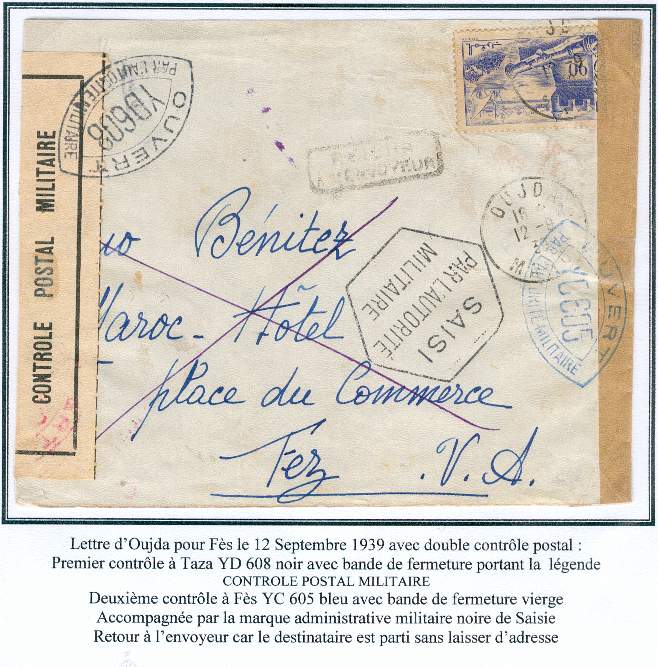 OUVERT
PAR L'AUTORITÉ MILITAIRE
YD608
CONTROLE POSTAL MILITAIRE
RETOUR
A L'ENVOYEUR
OUJDA
12
SAISI
PAR L'AUTORITÉ
MILITAIRE
OUVERT
YC605
PAR L'AUTORITÉ MILITAIRE
Bénitez
Maroc-Hôtel
place du Commerce
Fez . V. A.
Lettre d'Oujda pour Fès le 12 Septembre 1939 avec double contrôle postal :
Premier contrôle à Taza YD 608 noir avec bande de fermeture portant la légende
CONTROLE POSTAL MILITAIRE
Deuxième contrôle à Fès YC 605 bleu avec bande de fermeture vierge
Accompagnée par la marque administrative militaire noire de Saisie
Retour à l'envoyeur car le destinataire est parti sans laisser d'adresse